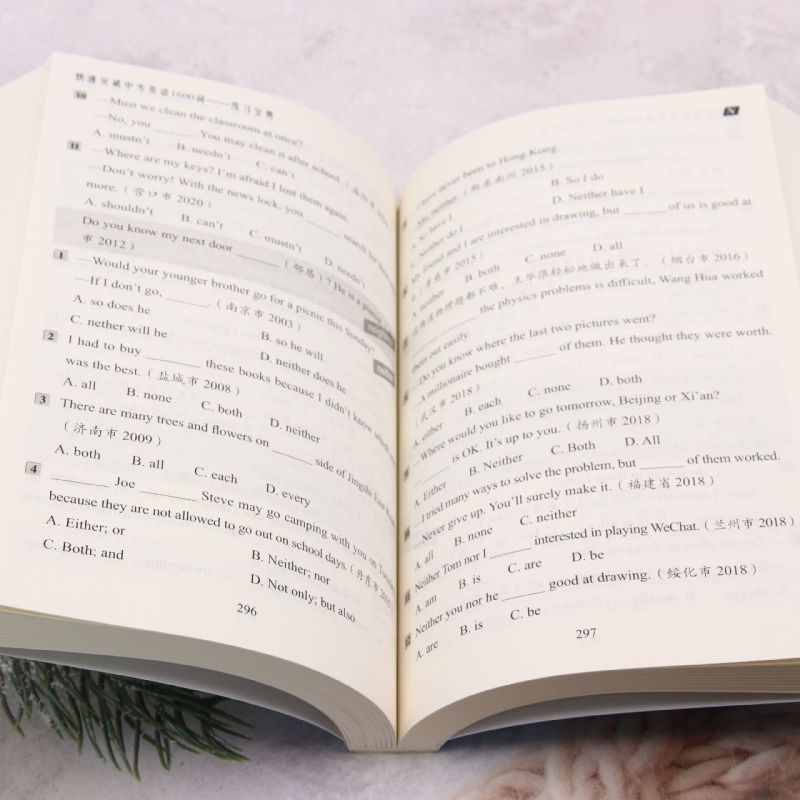 快速突破中考英语1600词——练习宝典
10 —Must we clean the classroom at once?
—No, you ______. You may clean it after school.
A. mustn't B. needn't C. can't
11 —Where are my keys? I'm afraid I lost them again.
—Don't worry! With the news lock, you ______ search for
more. (营口市 2020)
A. shouldn't B. can't C. mustn't D. needn't
Do you know my next door ______ (邻居)? He is a
市 2012)
1 —Would your younger brother go for a picnic this Sunday?
—If I don't go, ______. (南京市 2003)
A. so does he B. so he will
C. nether will he D. neither does he
2 I had to buy ______ these books because I didn't know which
was the best. (盐城市 2008)
A. all B. none C. both D. neither
3 There are many trees and flowers on ______ side of Jingshi East
(济南市 2009)
A. both B. all C. each D. every
4 ______ Joe ______ Steve may go camping with you on
because they are not allowed to go out on school days. (丹东市
A. Either; or B. Neither; nor
C. Both; and D. Not only; but also
296
N
I have never been to Hong Kong.
—My neither (黔东南州 2015)
A. So have I B. So I do
C. Neither do I D. Neither have I
My friend and I are interested in drawing, but ______ of us is good at
2015)
A. neither B. both C. none D. all
这两道物理题都不难，王华很轻松地做出来了。(烟台市 2016)
______ the physics problems is difficult, Wang Hua worked
them out easily.
—Do you know where the last two pictures went?
—A millionaire bought ______ of them. He thought they were worth.
(武汉市 2018)
A. either B. each C. none D. both
—Where would you like to go tomorrow, Beijing or Xi'an?
—______ is OK. It's up to you. (扬州市 2018)
A. Either B. Neither C. Both D. All
—I tried many ways to solve the problem, but ______ of them worked.
—Never give up. You'll surely make it. (福建省 2018)
A. all B. none C. neither
Neither Tom nor I ______ interested in playing WeChat. (兰州市 2018)
A. am B. is C. are D. be
Neither you nor he ______ good at drawing. (绥化市 2018)
A. are B. is C. be
297